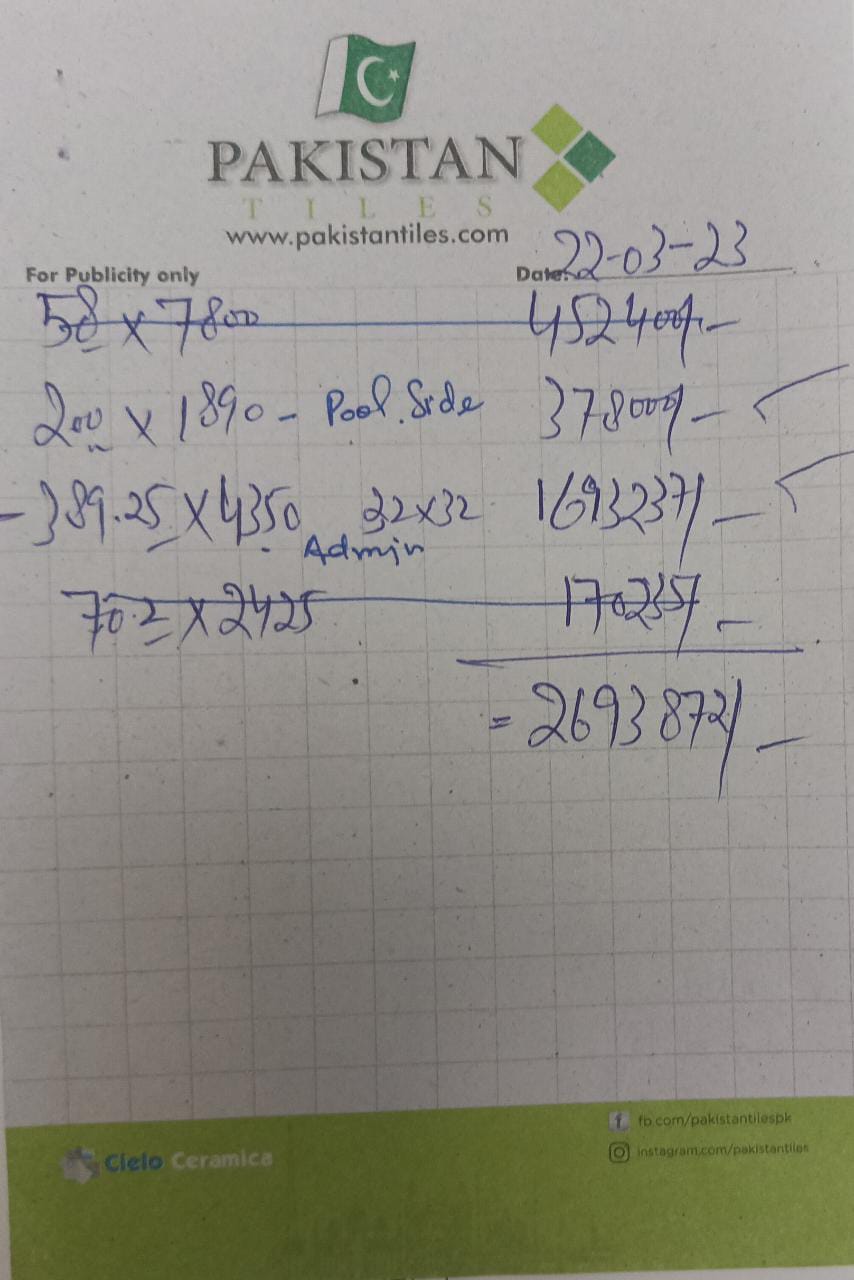 PAKISTAN
TILES
www.pakistantiles.com
For Publicity only Date: 22-03-23
58 x 7800 452400/-
200 x 1890 - Pool Side 378000/-
- 389.25 x 4350 32x32 1693237/-
Admin
70.2 x 2425 170235/-
= 2693872/-
Cielo Ceramica
fb.com/pakistantilespk
instagram.com/pakistantiles